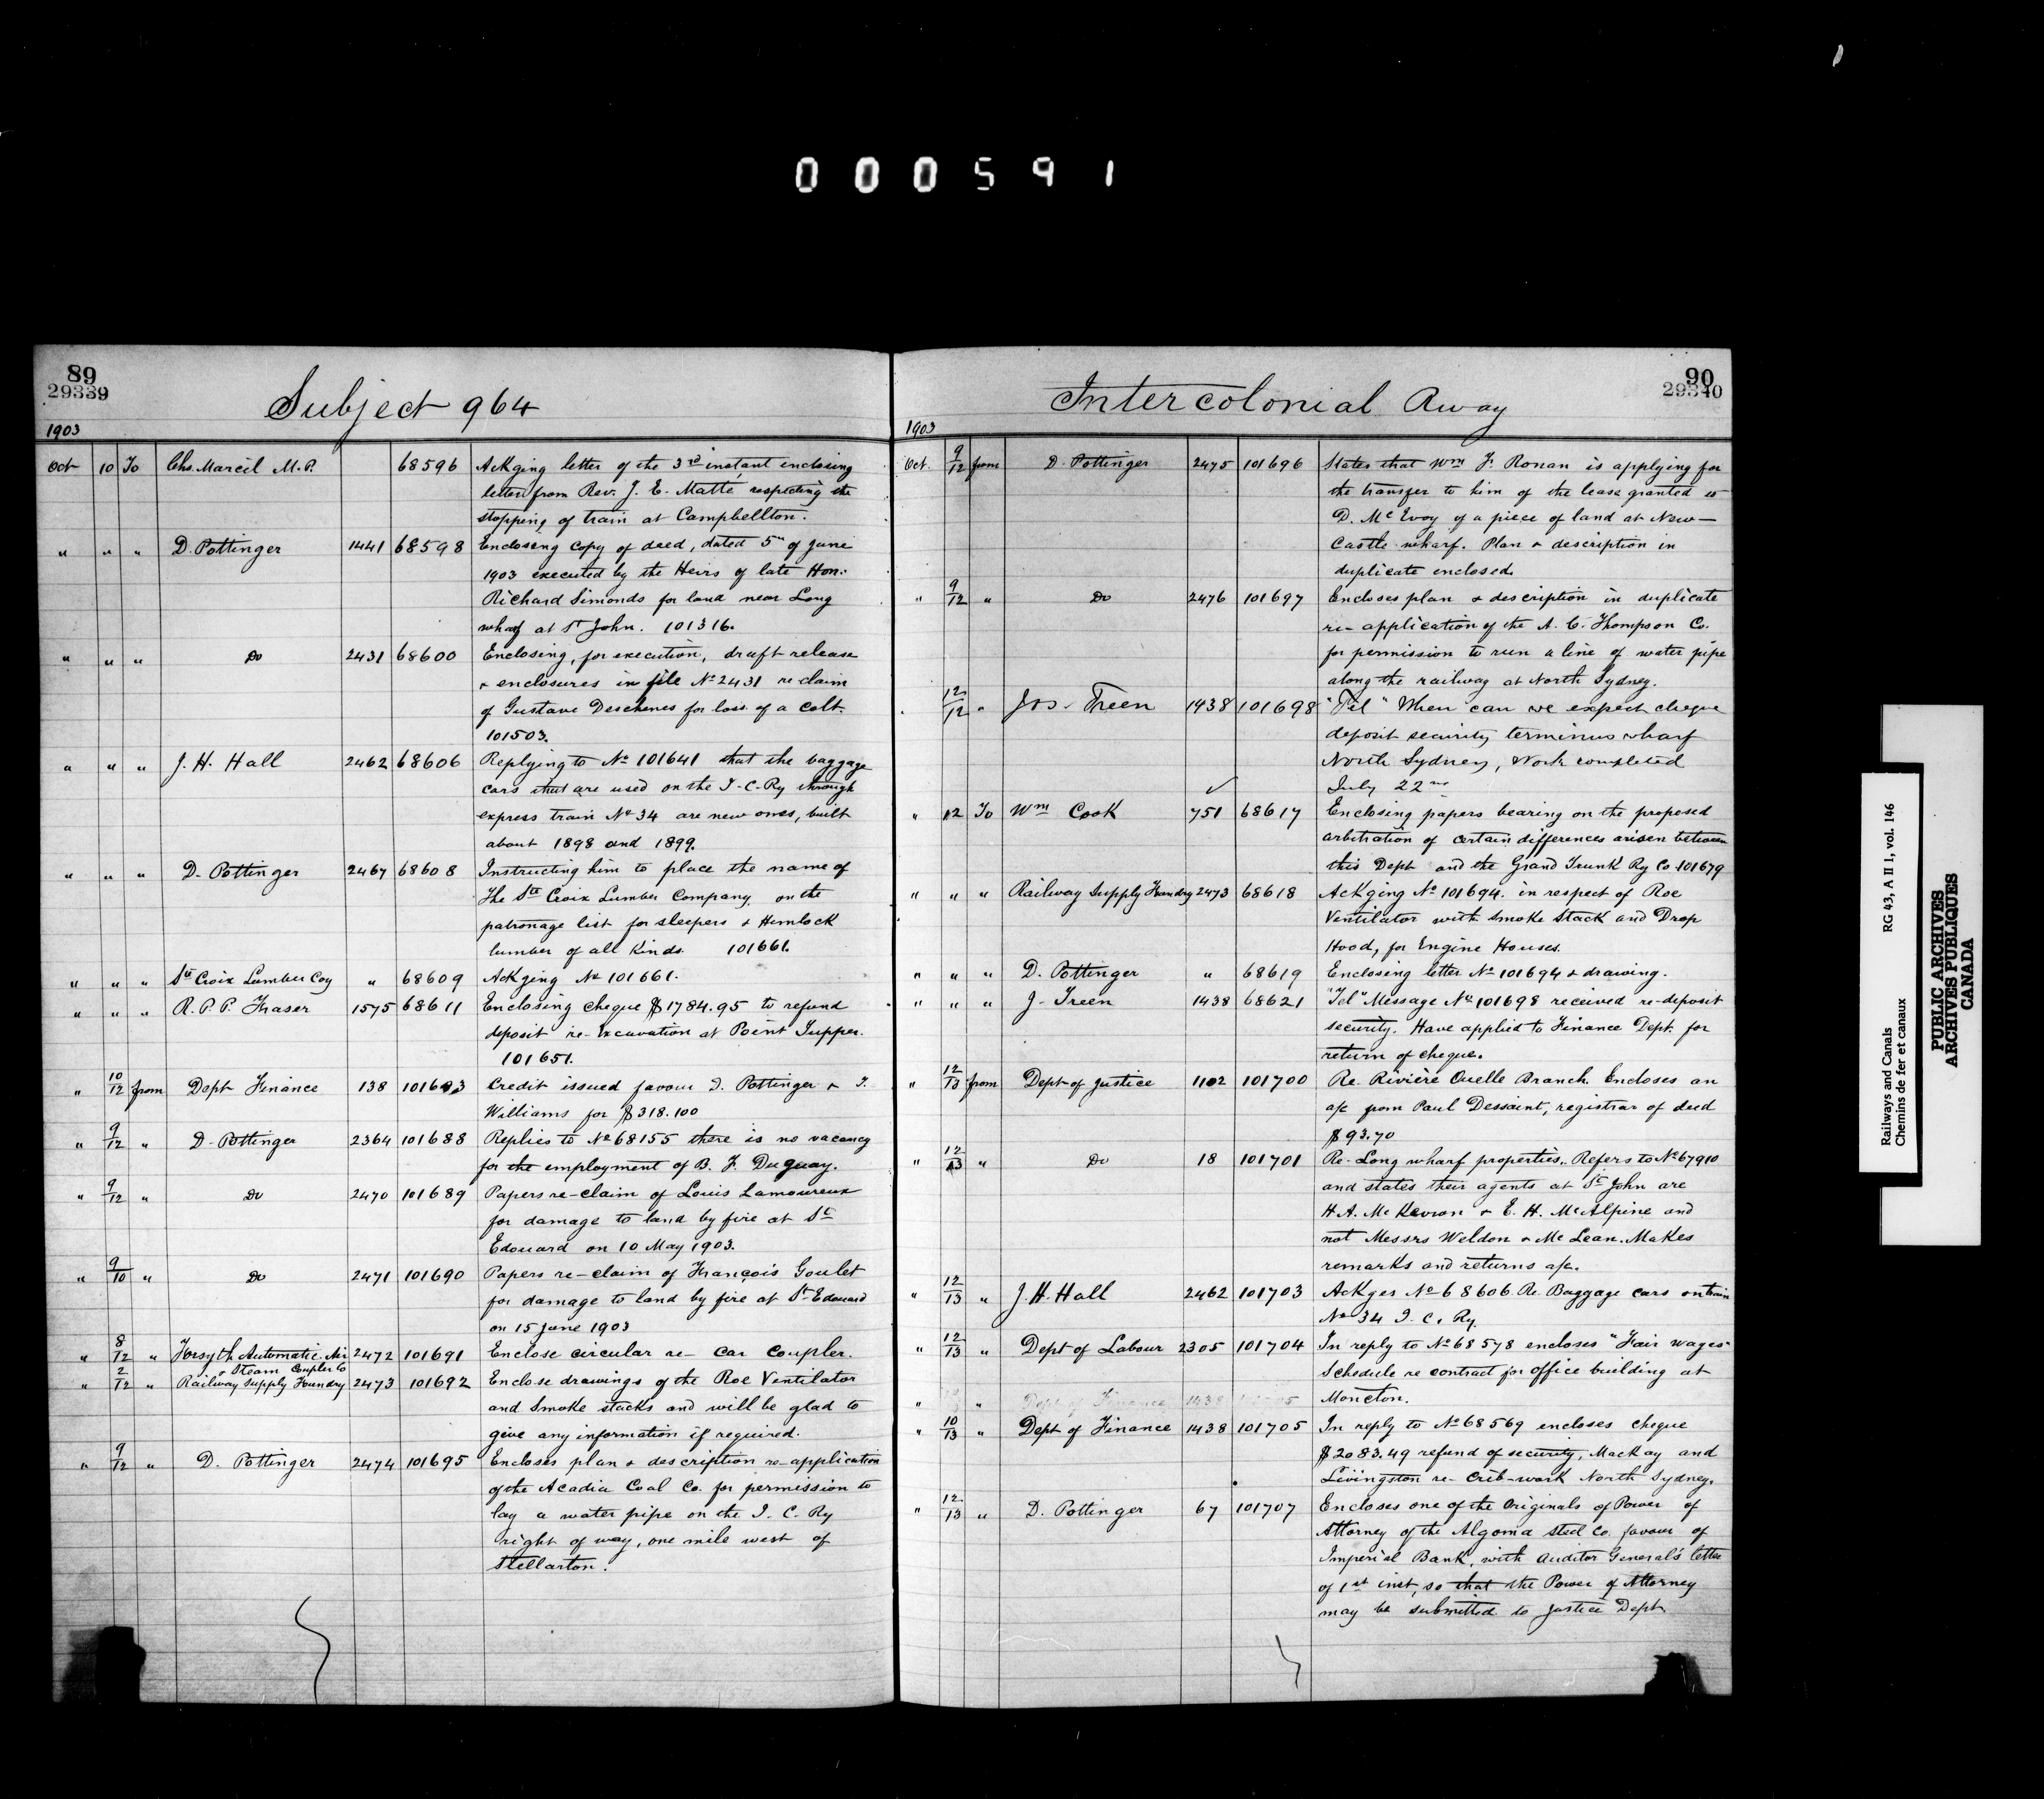 000591
89
29339
Subject 964
1903
Oct 10 To Chs. Marcil M.P. 68596 Ackging letter of the 3rd instant enclosing
letter from Rev. J. E. Matte respecting the
stopping of train at Campbellton.
" " " D. Pottinger 1441 68598 Enclosing copy of deed, dated 5th of June
1903 executed by the Heirs of late Hon.
Richard Simonds for land near Long
wharf at St John. 101316.
" " " Do 2431 68600 Enclosing, for execution, draft release
& enclosures in file No 2431 re claim
of Gustave Deschenes for loss of a colt.
101503.
" " " J. H. Hall 2462 68606 Replying to No 101641 that the baggage
cars that are used on the I-C-Ry through
express train No 34 are new ones, built
about 1898 and 1899.
" " " D. Pottinger 2467 68608 Instructing him to place the name of
The Ste Croix Lumber Company on the
patronage list for sleepers & Hemlock
lumber of all Kinds. 101661.
" " " Ste Croix Lumber Coy " 68609 Ackging No 101661.
" " " R. P. P. Fraser 1575 68611 Enclosing cheque $1784.95 to refund
deposit re-Excavation at Point Tupper.
101651.
" 10/12 from Dept Finance 138 Credit issued favour D. Pottinger & T.
Williams for $318.100
" 9/12 " D. Pottinger 2364 101688 Replies to No 68155 there is no vacancy
for the employment of B. F. Duguay.
" 9/12 " Do 2470 101689 Papers re-claim of Louis Lamoureux
for damage to land by fire at St
Edouard on 10 May 1903.
" 9/10 " Do 2471 101690 Papers re-claim of François Goulet
for damage to land by fire at St Edouard
on 15 June 1903
" 8/12 " Forsyth Automatic Air 2472 101691 Enclose circular re- car coupler.
& Steam Coupler Co
" 2/12 " Railway Supply Foundry 2473 101692 Enclose drawings of the Roe Ventilator
and Smoke stacks and will be glad to
give any information if required.
" 9/12 " D. Pottinger 2474 101695 Encloses plan & description re-application
of the Acadia Coal Co. for permission to
lay a water pipe on the I. C. Ry
right of way, one mile west of
Stellarton.
90
29340
Intercolonial Rway
1903
Oct. 9/12 from D. Pottinger 2475 101696 States that Wm F. Ronan is applying for
the transfer to him of the lease granted to
D. McEvoy of a piece of land at New-
Castle wharf. Plan & description in
duplicate enclosed.
" 9/12 " Do 2476 101697 Encloses plan & description in duplicate
re-application of the A. C. Thompson Co.
for permission to run a line of water pipe
along the railway at North Sydney.
" 12/12 " Jos. Treen 1438 101698 "Tel" When can we expect cheque
deposit security terminus wharf
North Sydney, Work completed
July 22nd
" 12 To Wm Cook 751 68617 Enclosing papers bearing on the proposed
arbitration of certain differences arisen between
this Dept and the Grand Trunk Ry Co 101679
" " " Railway Supply Foundry 2473 68618 Ackging No 101694. in respect of Roe
Ventilator with Smoke Stack and Drop
Hood, for Engine Houses.
" " " D. Pottinger " 68619 Enclosing letter No 101694 & drawing.
" " " J. Treen 1438 68621 "Tel" Message No 101698 received re-deposit
security. Have applied to Finance Dept. for
return of cheque.
" 12/13 from Dept of Justice 1102 101700 Re. Rivière Ouelle Branch. Encloses an
a/c from Paul Dessaint, registrar of deed
$93.70
" 12/13 " Do 18 101701 Re-Long wharf properties. Refers to No 67910
and states their agents at St John are
H. A. McKeown & E. H. McAlpine and
not Messrs Weldon & McLean. Makes
remarks and returns a/c.
" 12/13 " J. H. Hall 2462 101703 Ackges No 68606 Re. Baggage cars on train
No 34 I. C. Ry.
" 12/13 " Dept of Labour 2305 101704 In reply to No 68578 encloses "Fair wages"
Schedule re contract for office building at
" " Dept of Finance 1438 Moncton.
" 10/13 " Dept of Finance 1438 101705 In reply to No 68569 encloses cheque
$2083.49 refund of security, MacKay and
Livingston re-Crib-work North Sydney.
" 12/13 " D. Pottinger 67 101707 Encloses one of the Originals of Power of
Attorney of the Algoma Steel Co. favour of
Imperial Bank, with Auditor General's letter
of 1st inst, so that the Power of Attorney
may be submitted to Justice Dept
Railways and Canals RG 43, A II 1, vol. 146
Chemins de fer et canaux
PUBLIC ARCHIVES
ARCHIVES PUBLIQUES
CANADA